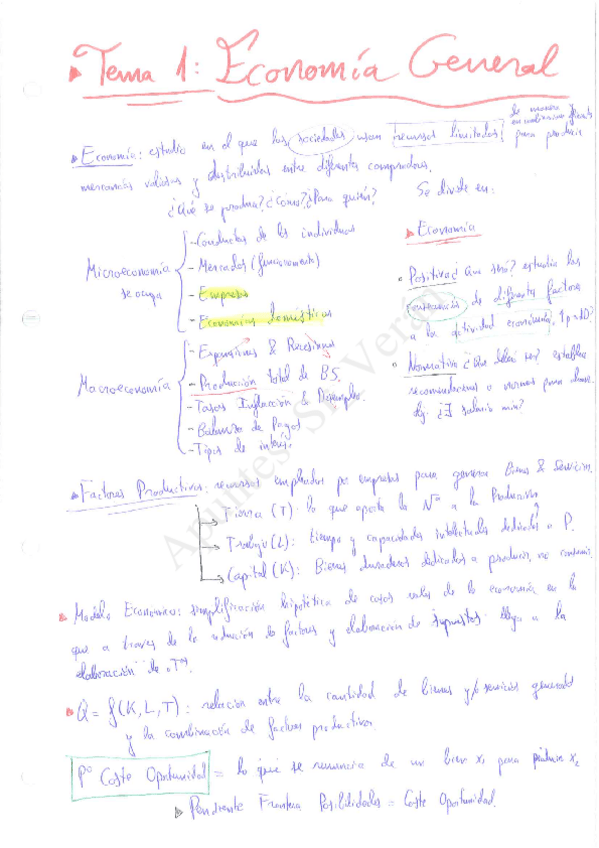 Tema 1: Economía General
de manera
Economía: estudio en el que las sociedades usan recursos limitados, para producir
mercancías valiosas y distribuirlas entre diferentes compradores.
¿Qué se produce? ¿Cómo? ¿Para quién?
Se divide en:
Microeconomía
se ocupa
- Conducta de los individuos
- Mercados (funcionamiento)
- Empresas
- Economías domésticas
Macroeconomía
- Expansiones & Recesiones
- Producción total de BS.
- Tasas Inflación & Desempleo
- Balanza de Pagos
- Tipos de interés.
Economía
Positiva ¿Qué será? estudia las
de diferentes factores
a la actividad económica.
Normativa ¿Qué debe ser? establece
recomendaciones o normas para
Ej: ¿ salario mín?
Factores Productivos: recursos empleados por empresas para generar Bienes & Servicios.
Tierra (T): lo que aporta la Nª a la Producción
Trabajo (L): tiempo y capacidades intelectuales dedicadas a P.
Capital (K): Bienes duraderos dedicados a producir, no consumir.
Modelo Económico: simplificación hipotética de casos reales de la economía en la
que a través de la de factores y elaboración de supuestos llega a la
elaboración de Tª
Q = f(K, L, T): relación entre la cantidad de bienes y/o servicios generados
y la combinación de factores productivos
Pº Coste Oportunidad = lo que se renuncia de un bien x₁ para producir x₂
Pendiente Frontera Posibilidades = Coste Oportunidad.
Apuntes Sr Verán